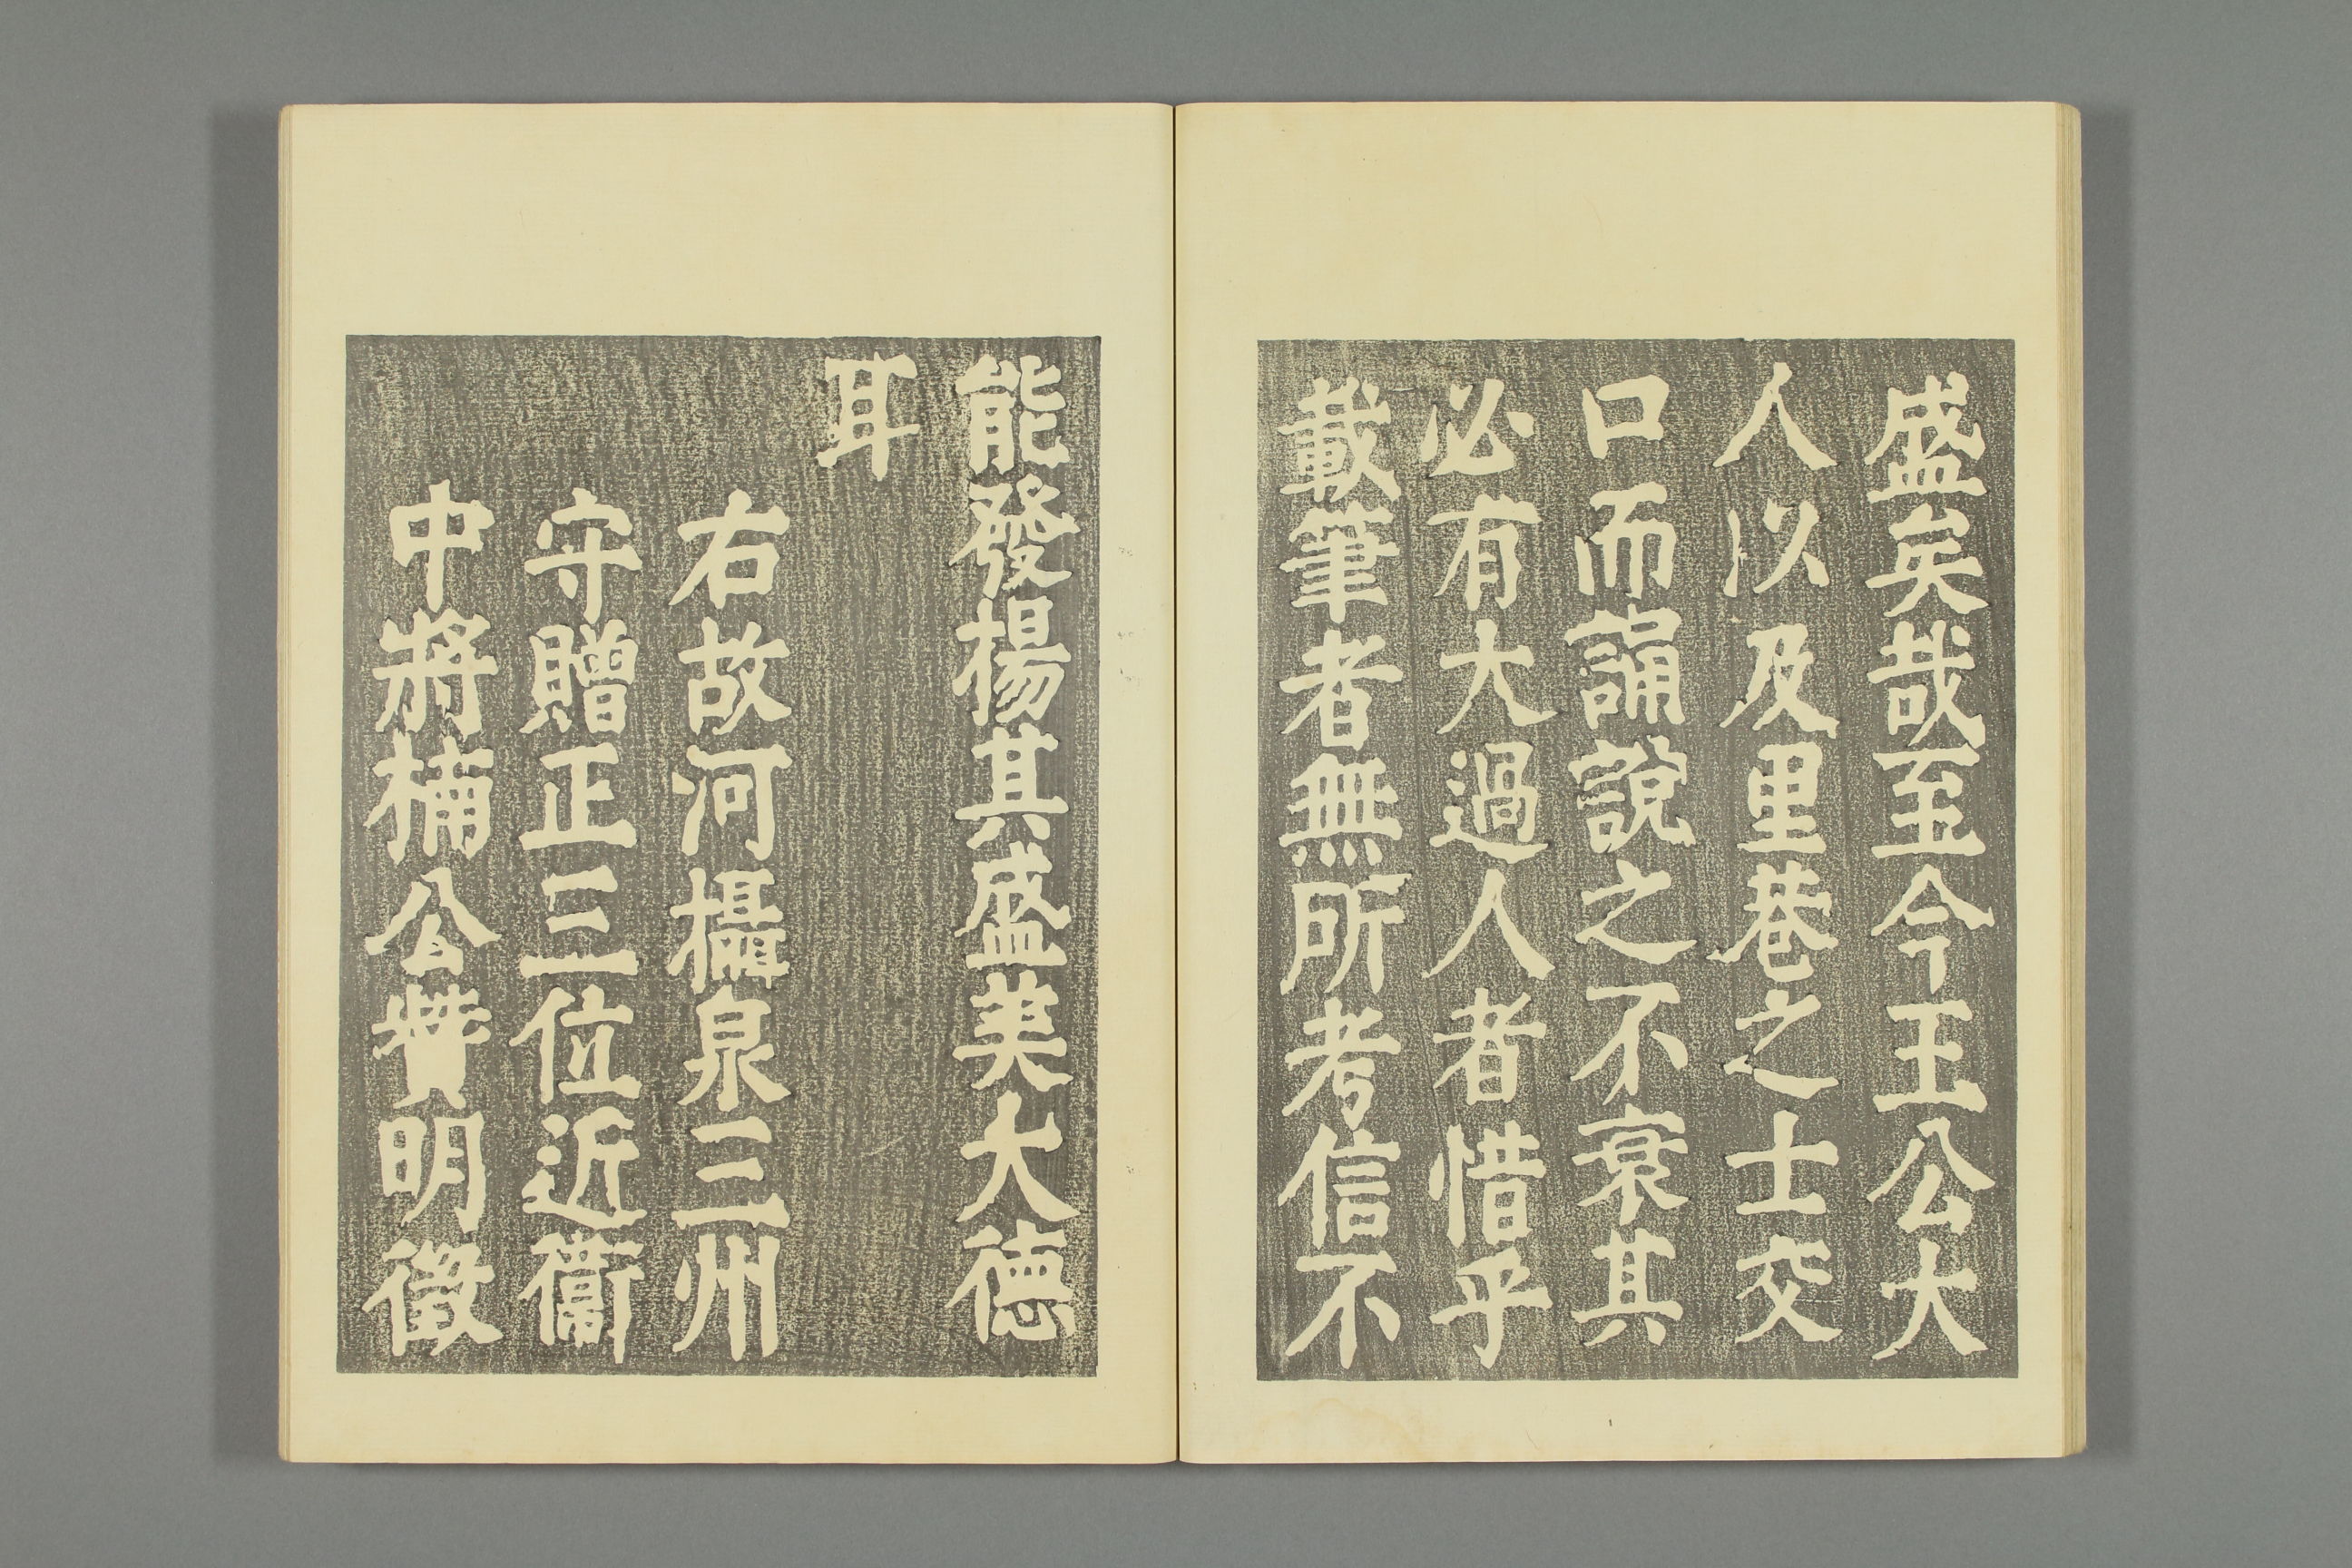 盛矣哉至今王公大
人以及里巷之士交
口而誦說之不衰其
必有大過人者惜乎
載筆者無所考信不
能發揚其盛美大德
耳
右故河攝泉三州
守贈正三位近衞
中將楠公贊明徵